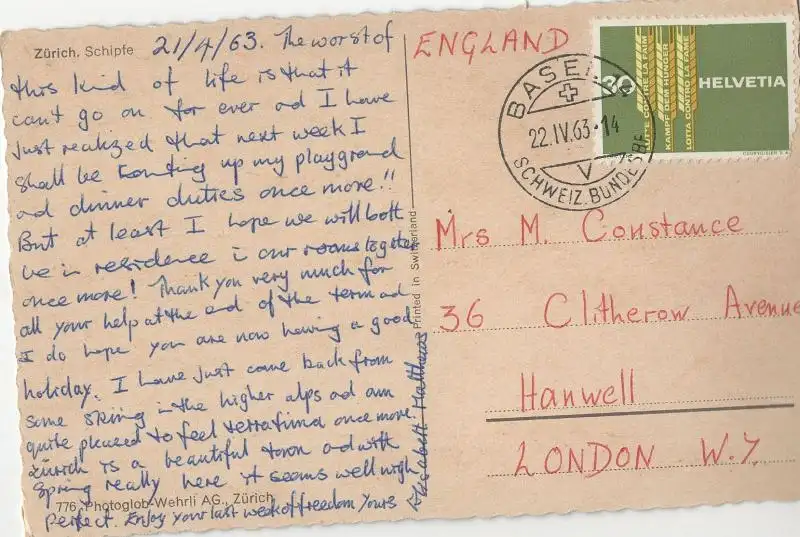 Zürich. Schipfe
21/4/63. The worst of
this kind of life is that it
can't go on for ever ad I have
just realized that next week I
shall be totting up my playground
ad dinner duties once more!!
But at least I hope we will both
be in residence in our rooms together
once more! Thank you very much for
all your help at the end of the term ad
I do hope you are now having a good
holiday. I have just come back from
some skiing in the higher alps ad am
quite pleased to feel terrafirma once more.
Zürich is a beautiful town ad with
Spring really here it seems well nigh
perfect. Enjoy your last week of freedom Yours
Elisabeth Matthews
776 Photoglob-Wehrli AG., Zürich
Printed in Switzerland
ENGLAND
BASEL
22.IV.63-14
V
SCHWEIZ. BUNDESBE
20
LUTTE CONTRE LA FAIM
KAMPF DEM HUNGER
LOTTA CONTRO LA FAME
HELVETIA
COURVOISIER S.A.
Mrs M. Constance
36 Clitherow Avenue
Hanwell
LONDON W.7.